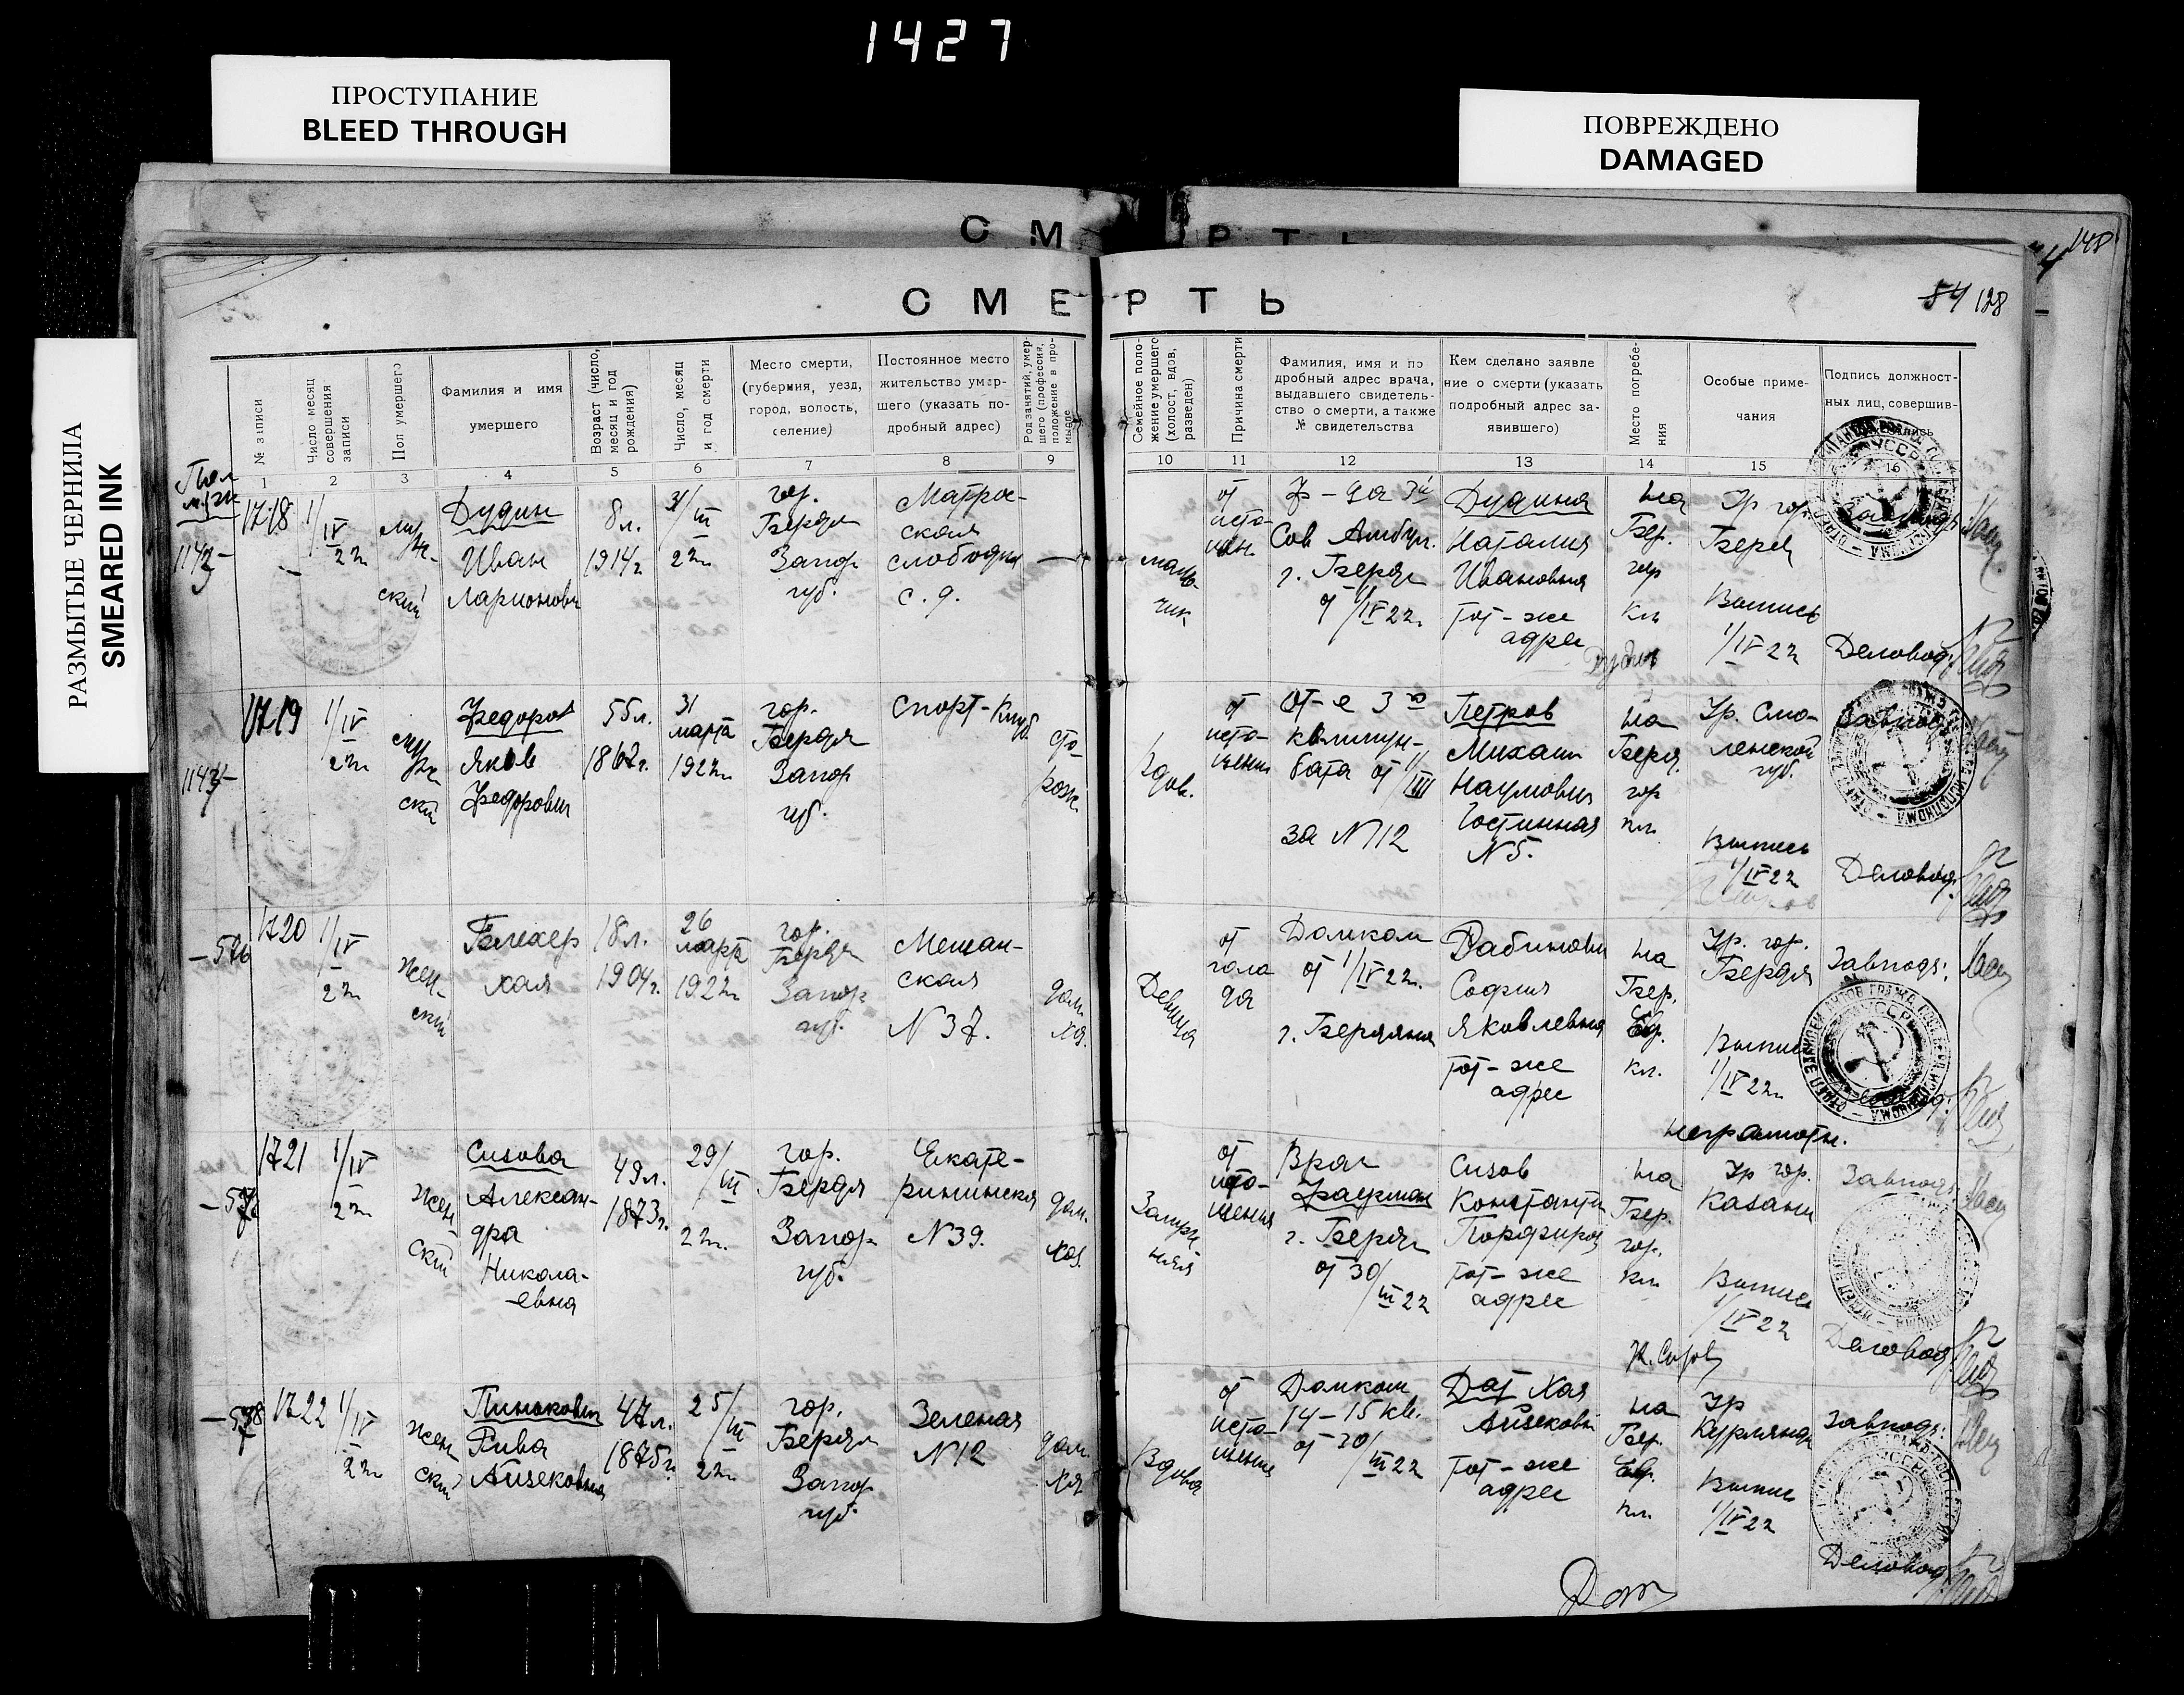 1427
ПРОСТУПАНИЕ
BLEED THROUGH
ПОВРЕЖДЕНО
DAMAGED
РАЗМЫТЫЕ ЧЕРНИЛА
SMEARED INK
148
СМЕРТЬ
54 128
№ записи
Число месяц совершения записи
Пол умершего
Фамилия и имя
умершего
Возраст (число, месяц и год рождения)
Число, месяц и год смерти
Место смерти,
(губерния, уезд,
город, волость,
селение)
Постоянное место
жительство умер-
шего (указать по-
дробный адрес)
Род занятий, умер-
шего (профессия,
положение в про-
мысле
Семейное поло-
жение умершего
(холост, вдов,
разведен)
Причина смерти
Фамилия, имя и по
дробный адрес врача,
выдавшего свидетель-
ство о смерти, а также
№ свидетельства
Кем сделано заявле
ние о смерти (указать
подробный адрес за-
явившего)
Место погребе-
ния
Особые приме-
чания
Подпись должност-
ных лиц, совершив-
1 2 3 4 5 6 7 8 9 10 11 12 13 14 15 16
1718
1/IV 22г
муж-
ский
Дудин
Иван
Ларионович
8л.
1914г
31/III
22г.
гор.
Бердян
Запор
губ.
Матрос-
ская
слободка
с. д.
маль-
чик
от
исто-
щен.
Сов Амбул.
г. Бердян
от 1/IV 22г.
Дудина
Наталия
Ивановна
тот-же
адрес
на
Бер.
гор
кл
Ур гор.
Бердян
Выпись
1/IV 22
Деловод:
1719
1/IV
22г.
муж-
ский
Федоров
Яков
Федорович
55л.
1867г.
31
марта
1922г.
гор.
Бердян
Запор
губ.
Спорт-Клуб
сто-
рож
Вдов.
от
исто-
щения
за №12
Петров
Михаил
Наумович
Гостинная
№5.
на
Бердя.
гор
кл.
Ур. Смо-
ленской
губ.
Завподъ
Выпись
1/IV 22
Деловод:
1720
1/IV
22г
жен-
ский
Блехер
Хая
18л.
1904г.
26
марта
1922г.
гор.
Бердян
Запор
губ.
Мещан-
ская
№37.
дом.
хоз.
Девица
от
голо
да
Домком
от 1/IV 22г.
г. Бердянск
Рабинович
София
Яковлевна
тот-же
адрес
на
Бер.
Евр.
кл.
Ур. гор.
Бердян
Завподъ:
Выпись
1/IV 22г.
неграмотн.
1721
1/IV
22г
жен-
ский
Сизова
Алексан-
дра
Никола-
евна
49л.
1873г.
29/III
22г.
гор.
Бердян
Запор
губ.
Екате-
рининская
№39.
дом.
хоз.
Замуж-
няя
от
исто-
щения
Врач
г. Бердян
от 30/III 22
Сизов
Константин
Порфиров
тот-же
адрес
на
Бер.
гор.
кл
Ур гор.
Казани
Завподъ:
Выпись
1/IV 22
К. Сизов
Деловод
1722
1/IV
22г
жен-
ский
Рива
Айзековна
47л.
1875г.
25/III
22г.
гор.
Бердян
Запор
губ.
Зеленая
№12
дом.
хоз.
Вдова
от
исто-
щения
Домком
14-15 кв.
от 30/III 22
Дат Хая
Айзековн
тот-же
адрес
на
Бер.
Евр.
кл.
Ур
Курлянд
Завподъ:
Выпись
1/IV 22
Деловод
Дат